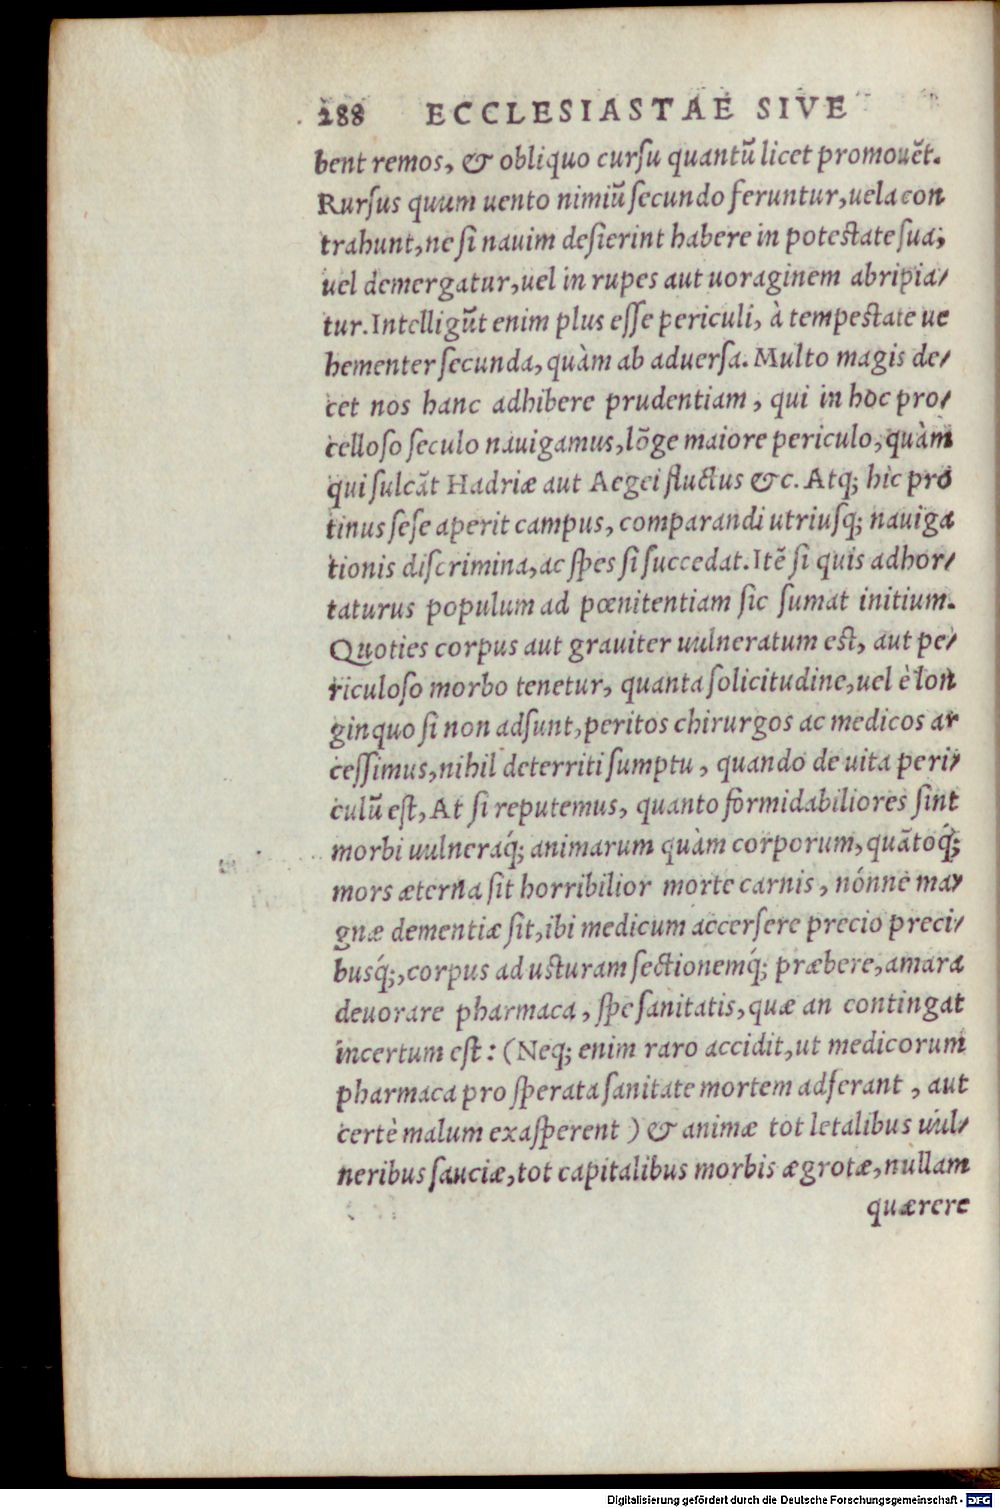 288 ECCLESIASTAE SIVE
bent remos, & obliquo cursu quantũ licet promouẽt.
Rursus quum uento nimiũ secundo feruntur, uela con
trahunt, ne si nauim desierint habere in potestate sua;
uel demergatur, uel in rupes aut uoraginem abripia/
tur. Intelligũt enim plus esse periculi, à tempestate ue
hementer secunda, quàm ab aduersa. Multo magis de/
cet nos hanc adhibere prudentiam, qui in hoc pro/
celloso seculo nauigamus, lõge maiore periculo, quàm
qui sulcãt Hadriæ aut Aegei fluctus &c. Atq; hic pro
tinus sese aperit campus, comparandi utriusq; nauiga
tionis discrimina, ac spes si succedat. Itẽ si quis adhor/
taturus populum ad pœnitentiam sic sumat initium.
Quoties corpus aut grauiter uulneratum est, aut pe/
riculoso morbo tenetur, quanta solicitudine, uel è lon
ginquo si non adsunt, peritos chirurgos ac medicos ar
cessimus, nihil deterriti sumptu, quando de uita peri/
culũ est, At si reputemus, quanto formidabiliores sint
morbi uulneraq́; animarum quàm corporum, quãtoq́;
mors æterna sit horribilior morte carnis, nónne ma/
gnæ dementiæ sit, ibi medicum accersere precio preci/
busq́;, corpus ad usturam sectionemq́; præbere, amara
deuorare pharmaca, spe sanitatis, quæ an contingat
incertum est: (Neq; enim raro accidit, ut medicorum
pharmaca pro sperata sanitate mortem adferant, aut
certè malum exasperent) & animæ tot letalibus uul/
neribus sauciæ, tot capitalibus morbis ægrotæ, nullam
quærere
Digitalisierung gefördert durch die Deutsche Forschungsgemeinschaft - DFG